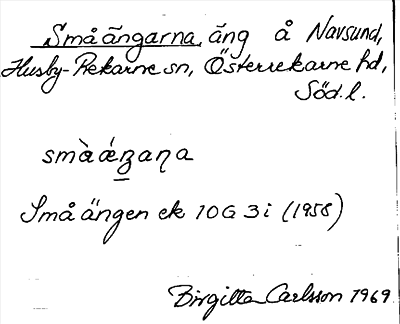 Småängarna, äng å Navsund,
Husby-Rekarne sn, Österrekarne hd,
Söd. l.
småä́ŋaɳa
Små ängen ek 10G 3i (1958)
Birgitta Carlsson 1969